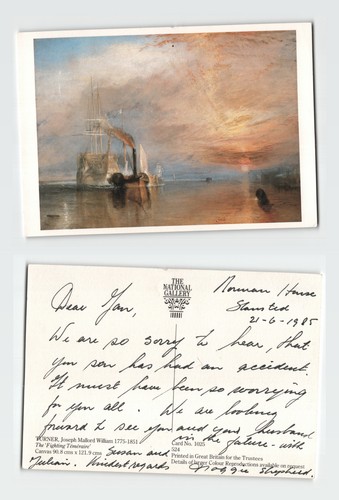 THE
NATIONAL
GALLERY
Norman House
Stansted
21-6-1985
Dear Jan,
We are so sorry to hear, that
you son has had an accident.
It must have been so worrying
for you all. We are looking
forward to see you and your husband
in the future - with
Susan and
Julian. Kindest regards
Shepherd.
TURNER, Joseph Mallord William 1775-1851
The 'Fighting Téméraire'
Canvas 90.8 cm x 121.9 cms
Card No. 1025
524
Printed in Great Britain for the Trustees
Details of larger Colour Reproductions available on request